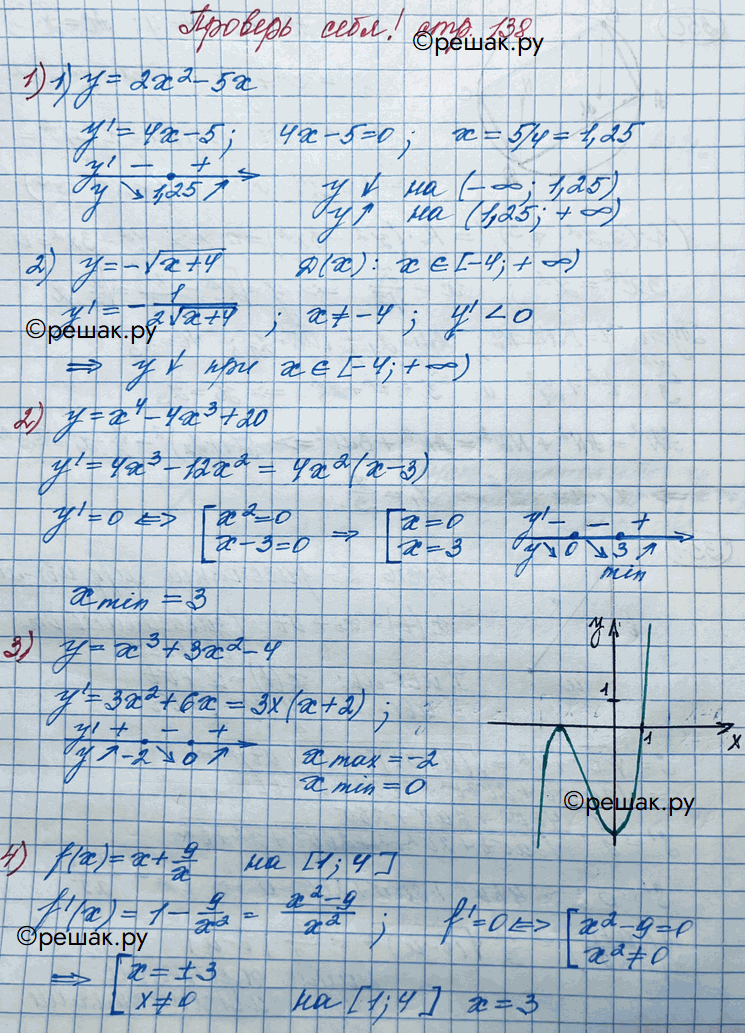 Проверь себя! стр. 138
©решак.ру
1) 1) y = 2x² - 5x
y' = 4x - 5; 4x - 5 = 0; x = 5/4 = 1,25
y' - +
y ↘ 1,25 ↗ y ↓ на (-∞; 1,25)
y ↑ на (1,25; +∞)
2) y = -√(x+4) D(x): x ∈ [-4; +∞)
y' = - 1/(2√(x+4)); x ≠ -4; y' < 0
©решак.ру
⇒ y ↓ при x ∈ [-4; +∞)
2) y = x⁴ - 4x³ + 20
y' = 4x³ - 12x² = 4x²(x - 3)
y' = 0 ⇔ [x² = 0 ⇒ [x = 0 y' - - +
x - 3 = 0 x = 3 y ↘ 0 ↘ 3 ↗
min
x min = 3
3) y = x³ + 3x² - 4
y' = 3x² + 6x = 3x(x + 2);
y' + - +
y ↗ -2 ↘ 0 ↗ x max = -2
x min = 0
y
1
1
x
©решак.ру
©решак.ру
4) f(x) = x + 9/x на [1; 4]
f'(x) = 1 - 9/x² = (x² - 9)/x²; f' = 0 ⇔ [x² - 9 = 0
x² ≠ 0
©решак.ру
⇒ [x = ±3
x ≠ 0 на [1; 4] x = 3